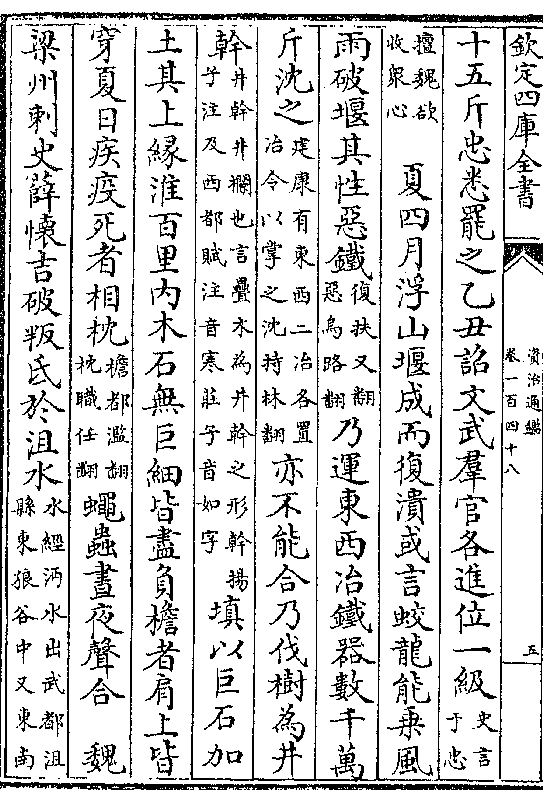 欽定四庫全書
資治通鑑
卷一百四十八
五
十五斤忠悉罷之乙丑詔文武羣官各進位一級史言于忠
擅魏欲收衆心　夏四月浮山堰成而復潰或言蛟龍能乗風
雨破堰其性惡鐵復扶又翻惡烏路翻乃運東西冶鐵器數千萬
斤沈之建康有東西二冶各置冶令以掌之沈持林翻亦不能合乃伐樹為井
幹井幹井欄也言疊木為井幹之形幹揚子注及西都賦注音寒莊子音如字填以巨石加
土其上緣淮百里内木石無巨細皆盡負檐者肩上皆
穿夏日疾疫死者相枕檐都濫翻枕職任翻蠅蟲晝夜聲合　魏
梁州刺史薛懷吉破叛氐於沮水水經沔水出武都沮縣東狼谷中又東南